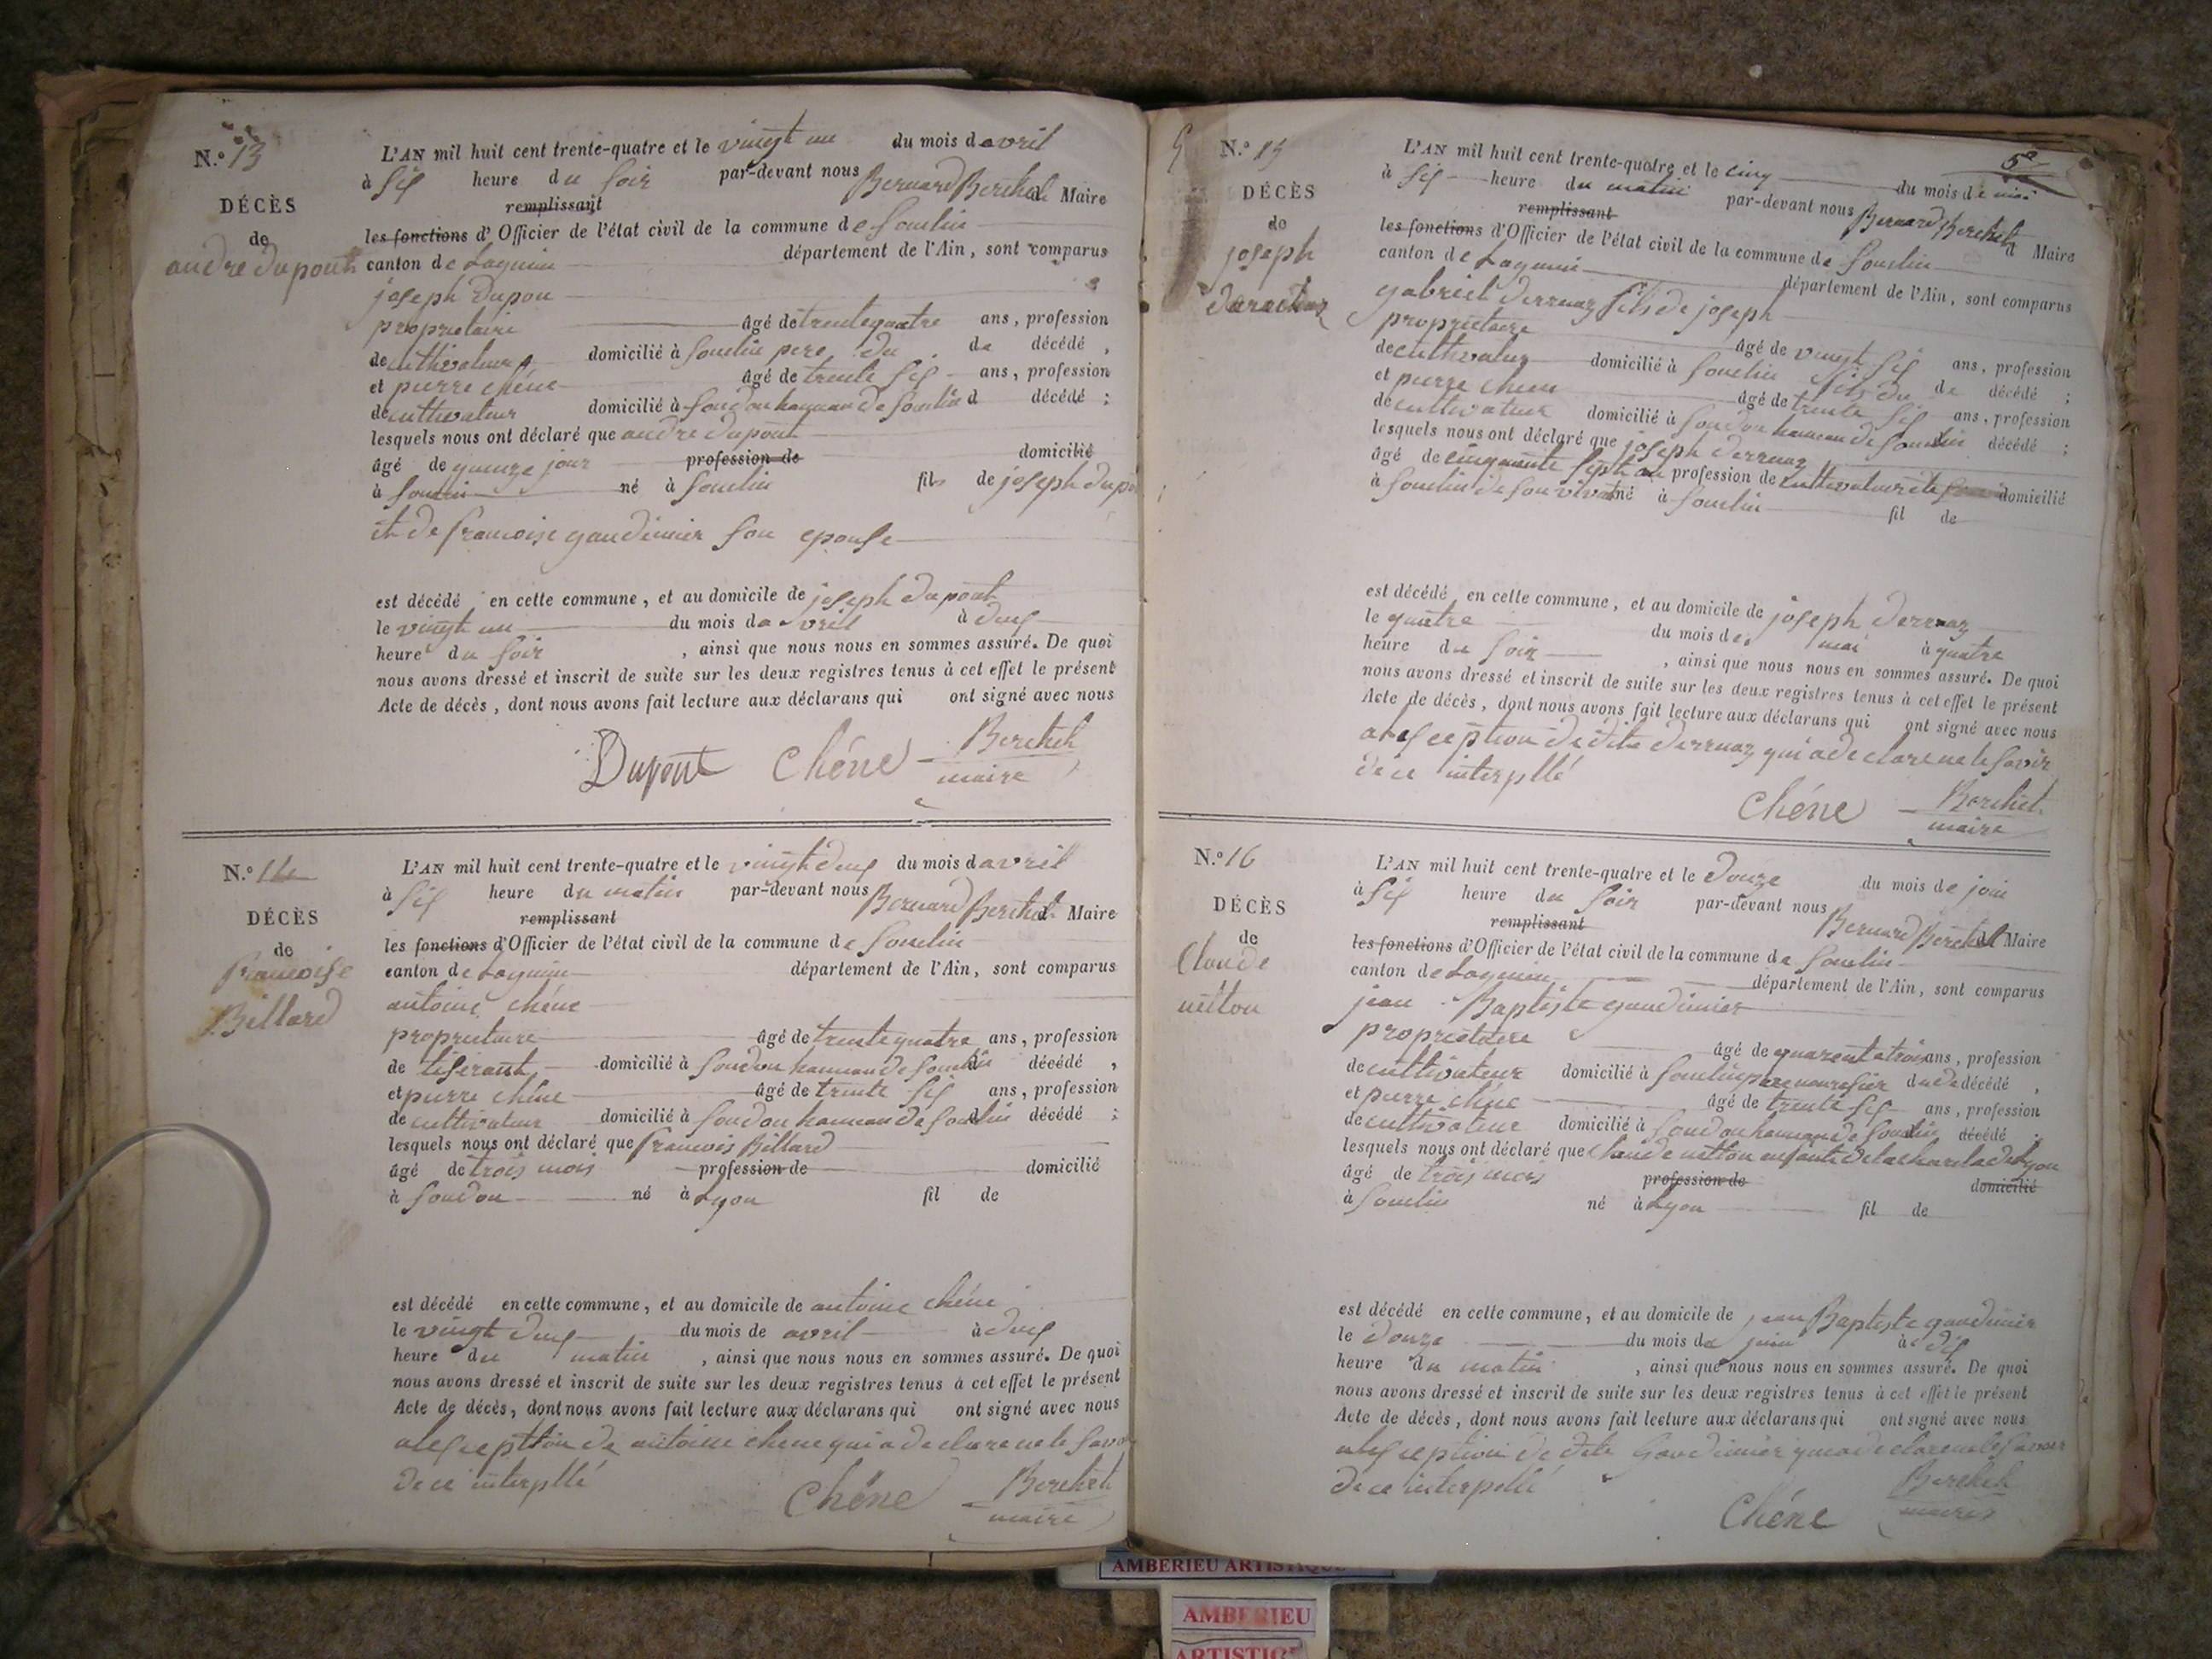 N.º 13
DÉCÈS
de
andre dupont
L'AN mil huit cent trente-quatre et le vingt un du mois d avril
à six heure du soir par-devant nous Bernard Berthet Maire
remplissant
les fonctions d'Officier de l'état civil de la commune de Souclin
canton de Lagnieu département de l'Ain, sont comparus
joseph dupon
proprietaire âgé de trente quatre ans, profession
de cultivateur domicilié à Souclin pere du de décédé,
et pierre chéne âgé de trente six ans, profession
de cultivateur domicilié à Soudon hameau de Souclin d décédé;
lesquels nous ont déclaré que andre dupont
âgé de quinze jour profession de domicilié
à Souclin né à Souclin fils de joseph dupo
et de francoise gaudinier son epouse
est décédé en cette commune, et au domicile de joseph dupont
le vingt un du mois da avril à deux
heure du soir, ainsi que nous nous en sommes assuré. De quoi
nous avons dressé et inscrit de suite sur les deux registres tenus à cet effet le présent
Acte de décès, dont nous avons fait lecture aux déclarans qui ont signé avec nous
Dupont Chéne Berthet
maire
N.º 14
DÉCÈS
de
francoise
Billard
L'AN mil huit cent trente-quatre et le vingt deux du mois d avril
à six heure du matin par-devant nous Bernard Berthet Maire
remplissant
les fonctions d'Officier de l'état civil de la commune de Souclin
canton de Lagnieu département de l'Ain, sont comparus
antoine chéne
proprietaire âgé de trente quatre ans, profession
de tiserant domicilié à Soudon hameau de Souclin d décédé,
et pierre chéne âgé de trente six ans, profession
de cultivateur domicilié à Soudon hameau de Souclin décédé;
lesquels nous ont déclaré que francois Billard
âgé de trois mois profession de domicilié
à Soudon né à Lyon fil de
est décédé en cette commune, et au domicile de antoine chéne
le vingt deux du mois de avril à deux
heure du matin, ainsi que nous nous en sommes assuré. De quoi
nous avons dressé et inscrit de suite sur les deux registres tenus à cet effet le présent
Acte de décès, dont nous avons fait lecture aux déclarans qui ont signé avec nous
a lexception de antoine chene qui a declare ne le savo
de ce interpllé
Chéne Berthet
maire
N.º 15
DÉCÈS
de
joseph
L'AN mil huit cent trente-quatre et le cinq du mois de mai
à six heure du matin par-devant nous Bernard Berthet Maire
remplissant
les fonctions d'Officier de l'état civil de la commune de Souclin
canton de Lagnieu département de l'Ain, sont comparus
gabriel derruaz fils de joseph
proprietaire âgé de vingt six ans, profession
de cultivateur domicilié à Souclin fils du de décédé;
et pierre chene âgé de trente six ans, profession
de cultivateur domicilié à Soudon hameau de Souclin décédé;
lesquels nous ont déclaré que joseph derruaz
âgé de cinquante sept an profession de cultivateur domicilié
à Souclin de son vivant né à Souclin fil de
est décédé en cette commune, et au domicile de joseph derruaz
le quatre du mois de mai à quatre
heure du soir, ainsi que nous nous en sommes assuré. De quoi
nous avons dressé et inscrit de suite sur les deux registres tenus à cet effet le présent
Acte de décès, dont nous avons fait lecture aux déclarans qui ont signé avec nous
a lexception de dit derruaz qui a declare ne le savoir
de ce interpllé
Chéne Berthet
maire
N.º 16
DÉCÈS
de
Claude
mitton
L'AN mil huit cent trente-quatre et le douze du mois de juin
à six heure du soir par-devant nous Bernard Berthet Maire
remplissant
les fonctions d'Officier de l'état civil de la commune de Souclin
canton de Lagnieu département de l'Ain, sont comparus
jean Baptiste gaudinier
proprietaire âgé de quarente trois ans, profession
de cultivateur domicilié à Souclin pere nourisier du de décédé,
et pierre chéne âgé de trente six ans, profession
de cultivateur domicilié à Soudon hameau de Souclin décédé
lesquels nous ont déclaré que Claude mitton enfant de la charite de Lyon
âgé de trois mois profession de domicilié
à Souclin né à Lyon fil de
est décédé en cette commune, et au domicile de jean Baptiste gaudinier
le douze du mois de juin à dix
heure du matin, ainsi que nous nous en sommes assuré. De quoi
nous avons dressé et inscrit de suite sur les deux registres tenus à cet effet le présent
Acte de décès, dont nous avons fait lecture aux déclarans qui ont signé avec nous
a lexception de dit Gaudinier qui a declare ne le savoir
de ce interpellé
Chéne Berthet
maire
AMBERIEU ARTISTIQUE
AMBERIEU
ARTISTIQ